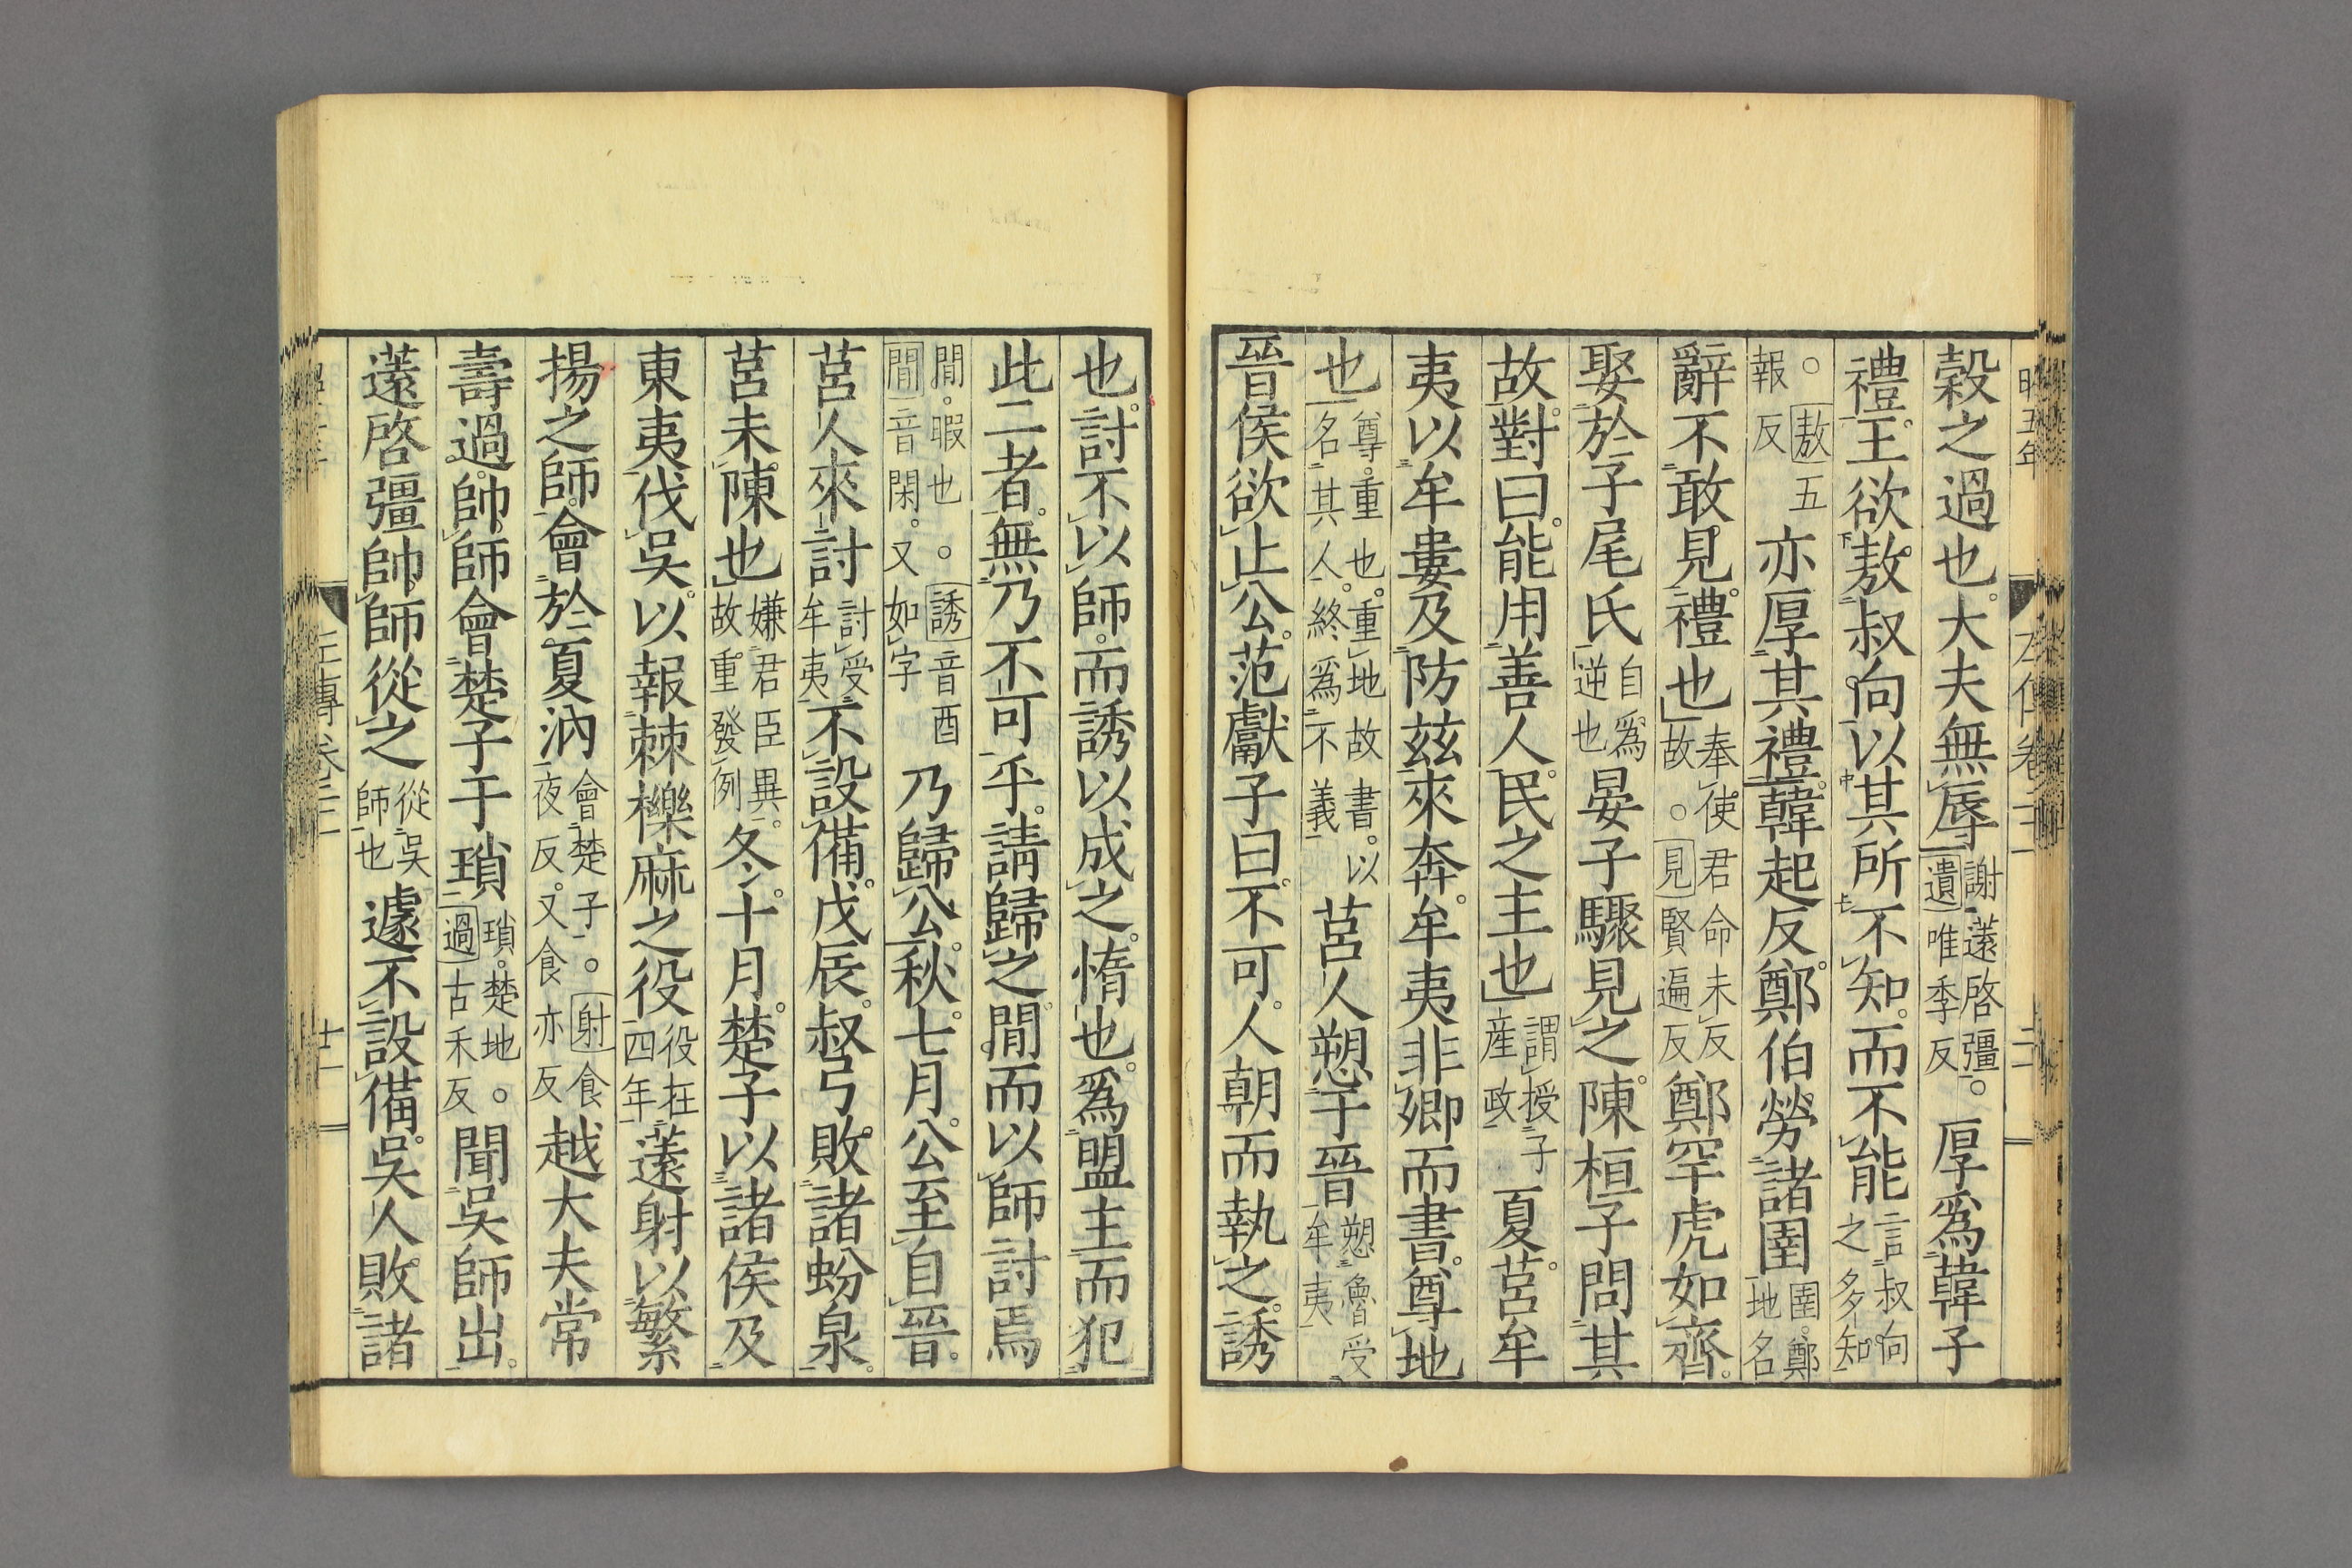 穀之過也。大夫無辱謝薳啓彊。遺唯季反。厚爲韓子
禮。王欲敖叔向以其所不知。而不能言叔向之多知
。敖五報反亦厚其禮。韓起反。鄭伯勞諸圉圉。鄭地名
辭不敢見。禮也奉使君命未反故。見賢遍反鄭罕虎如齊。
娶於子尾氏自爲逆也晏子驟見之。陳桓子問其
故。對曰。能用善人。民之主也謂授子産政夏。莒牟
夷以牟婁及防茲來奔。牟夷非卿而書。尊地
也尊。重也。重地故書。以名其人。終爲不義莒人愬于晉愬魯受牟夷
晉侯欲止公。范獻子曰。不可。人朝而執之。誘
也。討不以師。而誘以成之。惰也。爲盟主而犯
此二者。無乃不可乎。請歸之。閒而以師討焉
閒。暇也。誘音酉閒音閑。又如字乃歸公。秋。七月。公至自晉。
莒人來討討受牟夷不設備。戊辰。叔弓敗諸蚡泉。
莒未陳也嫌君臣異。故重發例冬。十月。楚子以諸侯及
東夷伐吳。以報棘櫟麻之役役在四年薳射以繁
揚之師。會於夏汭會楚子。射食夜反。又食亦反越大夫常
壽過。帥師會楚子于瑣瑣。楚地。過古禾反聞吳師出。
薳啓彊帥師從之從吳師也遽不設備。吳人敗諸